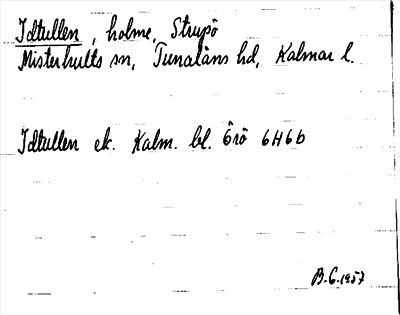 Idtullen, holme, Strupö
Misterhults sn, Tunaläns hd, Kalmar l.
Idtullen ek. Kalm. bl. Örö 6H6b
B.G. 1957